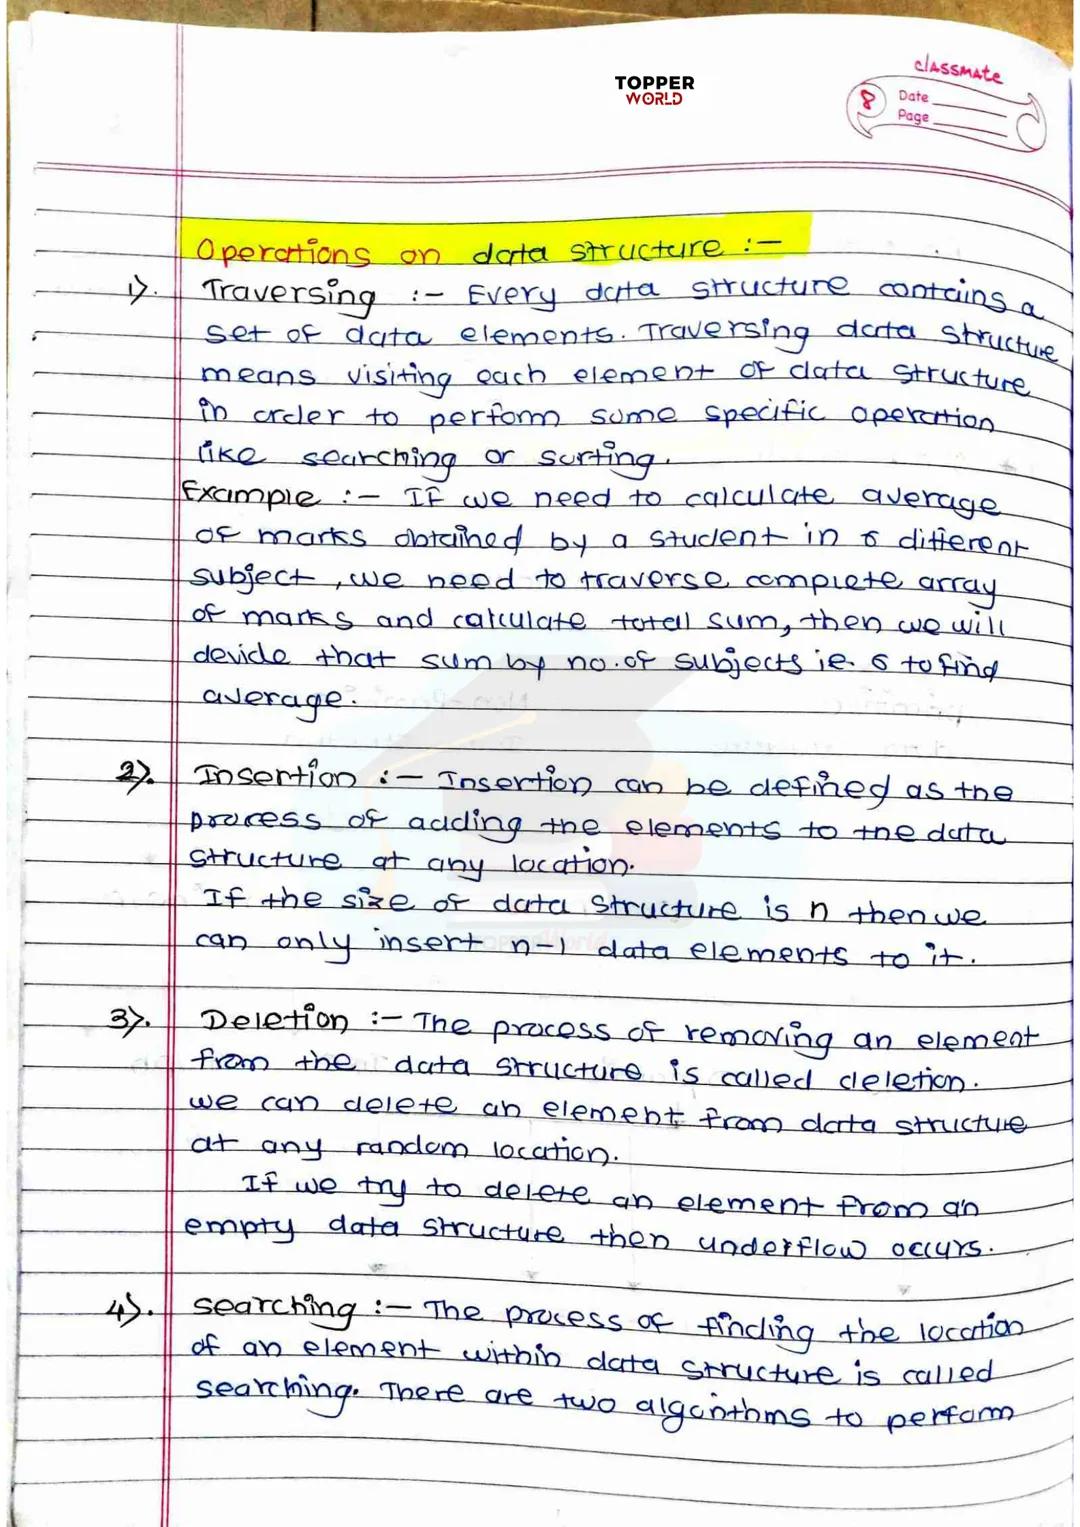 TOPPER
WORLD
classmate
8
Date
Page
Operations on data structure :-
1). Traversing :- Every data structure contains a
set of data elements. Traversing data structure
means visiting each element of data structure
in order to perform some specific operation
like searching or sorting.
Example :- If we need to calculate average
of marks obtained by a student in 6 different
subject, we need to traverse complete array
of marks and calculate total sum, then we will
devide that sum by no. of subjects ie. 6 to find
average.
2). Insertion :- Insertion can be defined as the
process of adding the elements to the data
structure at any location.
If the size of data structure is n then we
can only insert n-1 data elements to it.
3). Deletion :- The process of removing an element
from the data structure is called deletion.
we can delete an element from data structure
at any random location.
If we try to delete an element from an
empty data structure then underflow occurs.
4). searching :- The process of finding the location
of an element within data structure is called
searching. There are two algorithms to perform